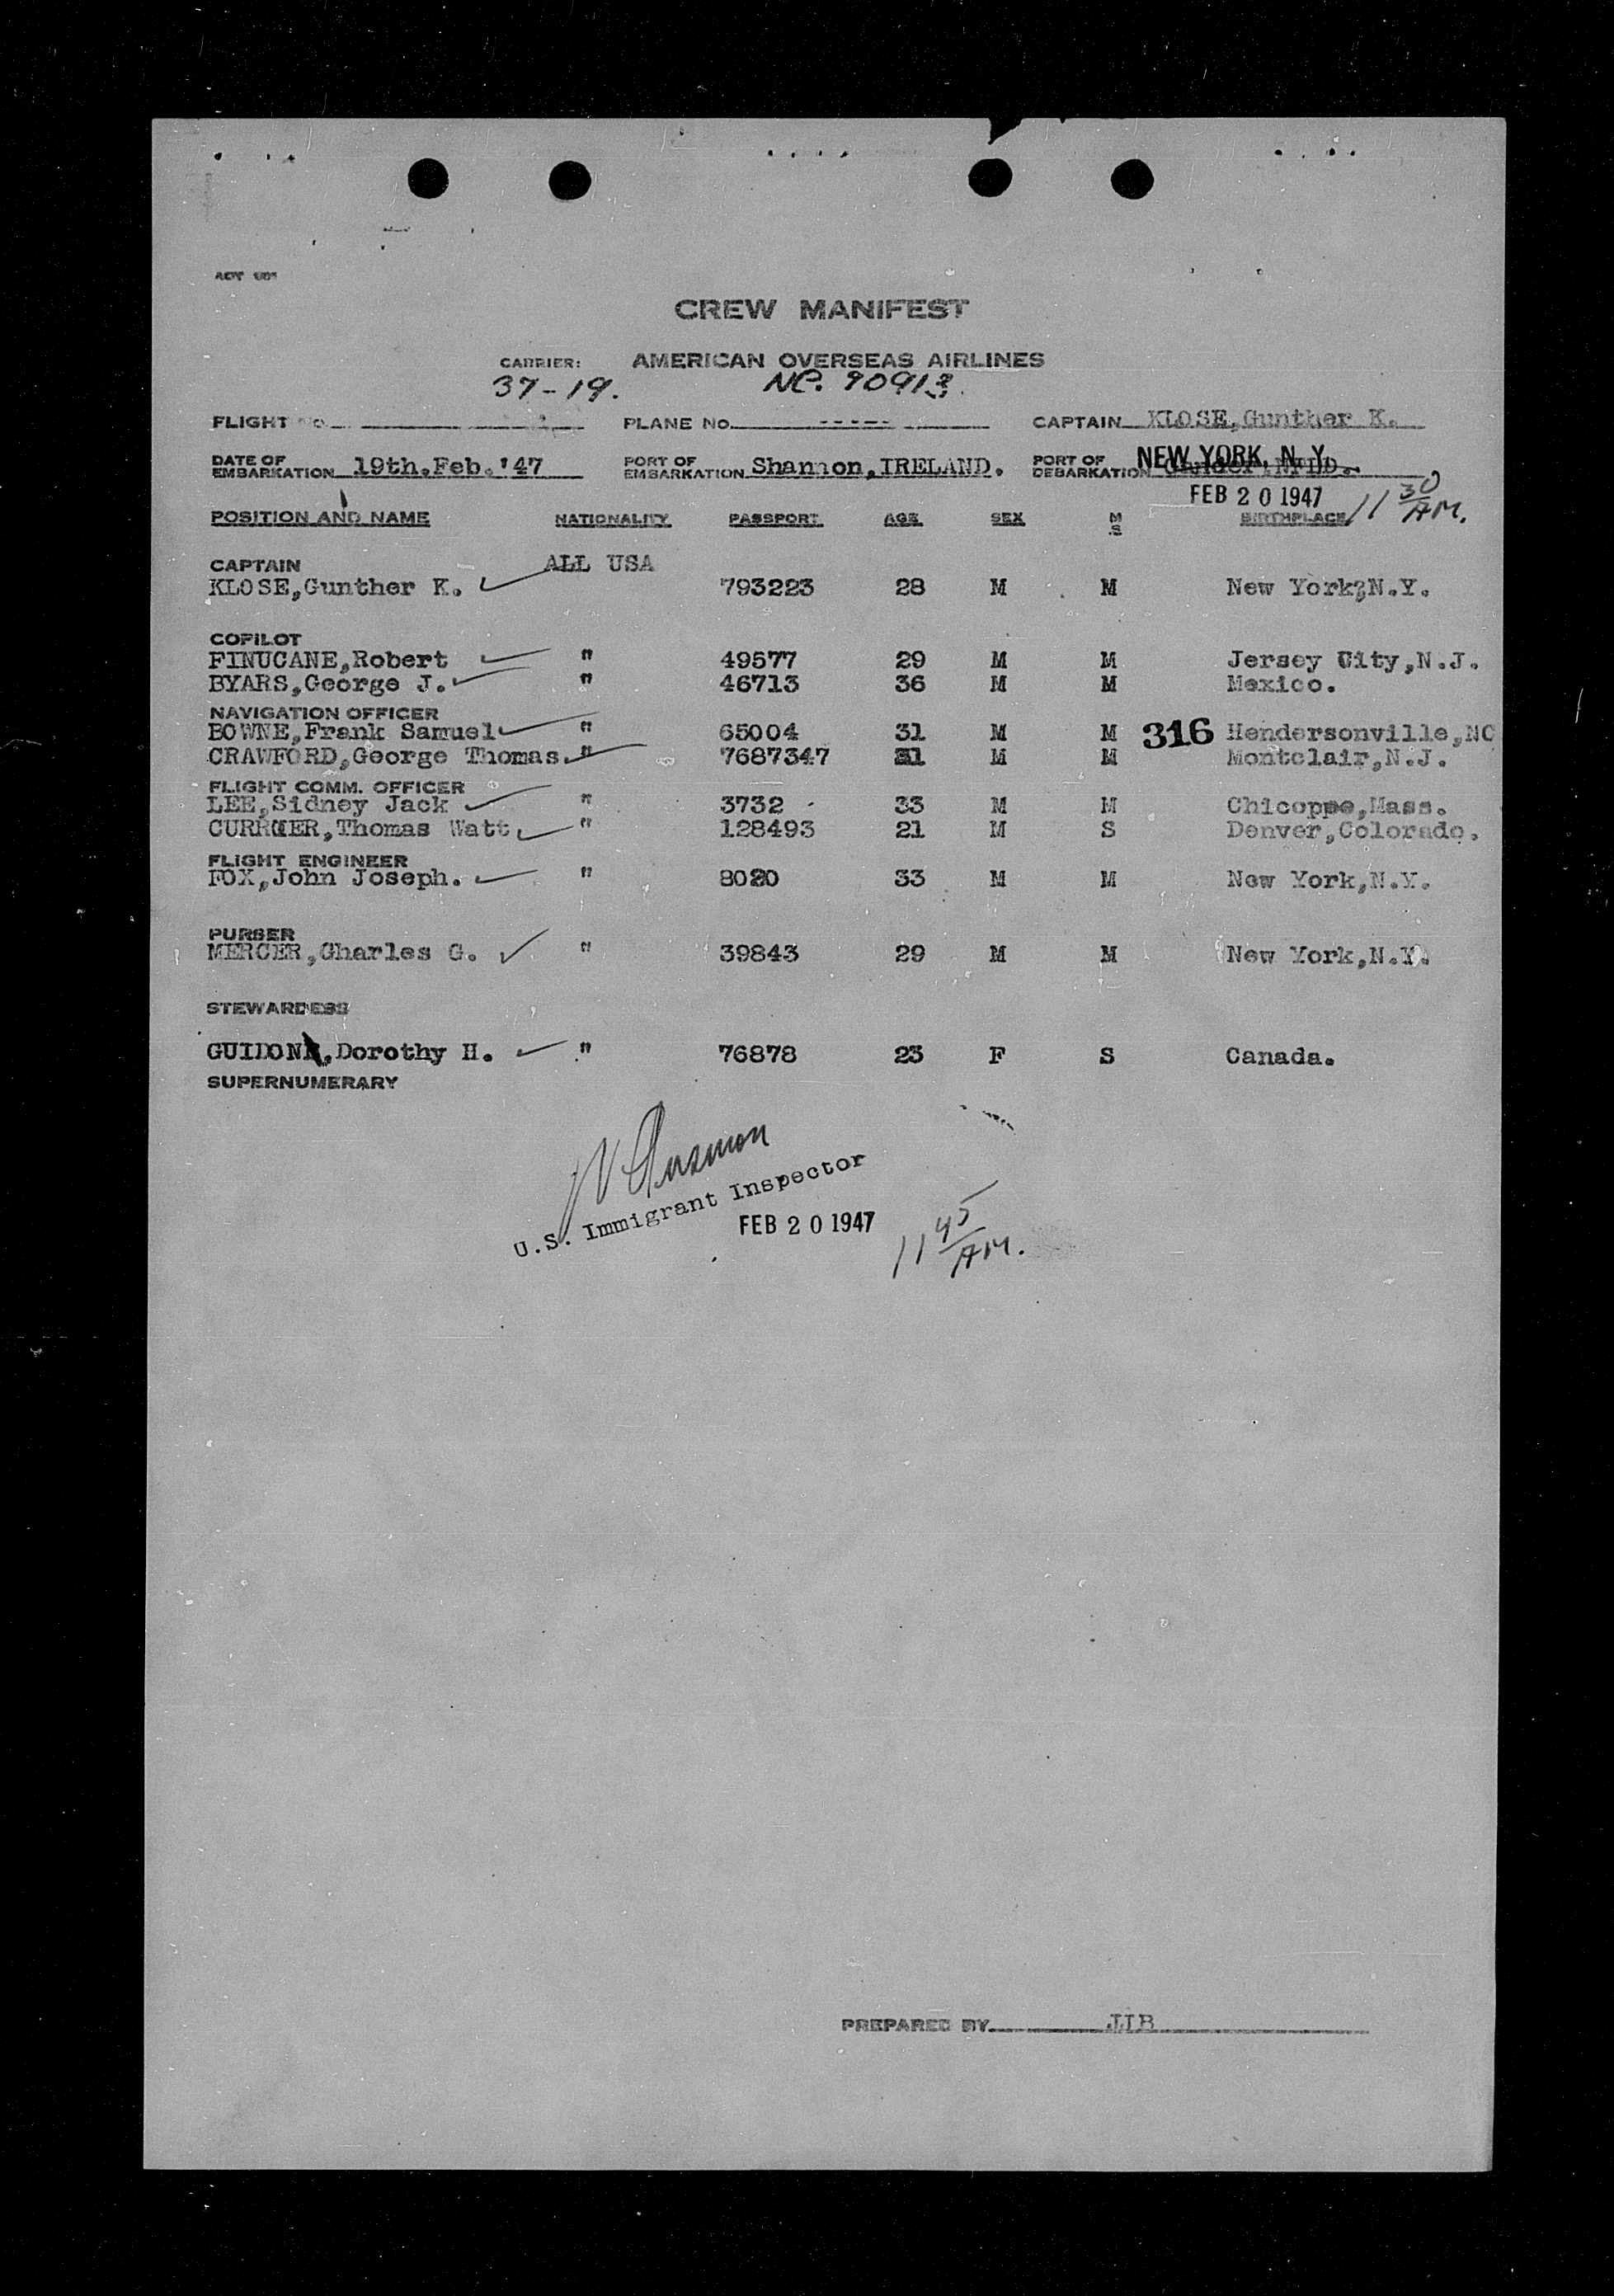 CREW MANIFEST
CARRIER: AMERICAN OVERSEAS AIRLINES
37-19. NC. 90913.
FLIGHT No PLANE No. ----- CAPTAIN KLOSE,Gunther K.
DATE OF EMBARKATION 19th.Feb.'47 PORT OF EMBARKATION Shannon,IRELAND. PORT OF DEBARKATION NEW YORK, N. Y.
FEB 20 1947 11 30 AM.
POSITION AND NAME NATIONALITY PASSPORT AGE SEX M S BIRTHPLACE
CAPTAIN ALL USA
KLOSE,Gunther K. 793223 28 M M New York,N.Y.
COPILOT
FINUCANE,Robert " 49577 29 M M Jersey City,N.J.
BYARS,George J. " 46713 36 M M Mexico.
NAVIGATION OFFICER
BOWNE,Frank Samuel " 65004 31 M M 316 Hendersonville,NC
CRAWFORD,George Thomas. " 7687347 31 M M Montclair,N.J.
FLIGHT COMM. OFFICER
LEE,Sidney Jack " 3732 - 33 M M Chicopee,Mass.
CURRIER,Thomas Watt. " 128493 21 M S Denver,Colorado.
FLIGHT ENGINEER
FOX,John Joseph. " 8020 33 M M New York,N.Y.
PURSER
MERCER,Charles G. " 39843 29 M M New York,N.Y.
STEWARDESS
GUIDON,Dorothy H. " 76878 23 F S Canada.
SUPERNUMERARY
U.S. Immigrant Inspector
FEB 20 1947 11 45 AM.
PREPARED BY JJB